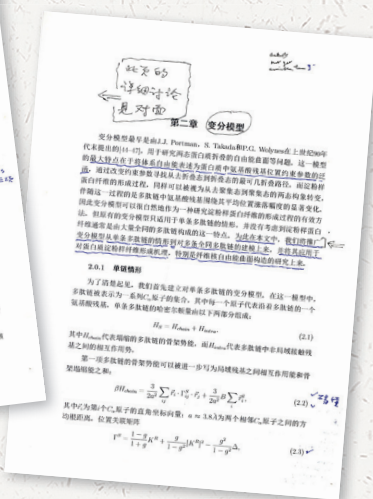 此页的
详细讨论
是对面
第二章 变分模型
变分模型最早是由J.J. Portman、S. Takada和P.G. Wolynes在上世纪90年
代末提出的[44-47]，用于研究两态蛋白质折叠的自由能曲面等问题。这一模型
的最大特点在于将体系自由能表述为蛋白质中氨基酸残基位置约束参数的泛
函，通过改变约束参数寻找从去折叠态到折叠态的最可几折叠路径。而淀粉样
蛋白纤维的形成过程，同样可以被视为从去聚集态到聚集态的两态构象转变，
伴随这一过程的是多肽链中氨基酸残基围绕其平均位置涨落幅度的显著变化。
因此变分模型可以很自然地作为一种研究淀粉样蛋白纤维的形成过程的有效方
法。但原有的变分模型只适用于单条多肽链的情形，并没有考虑到淀粉样蛋白
纤维通常是由大量全同的多肽链构成的这一特点。为此在本文中，我们将推广
变分模型从单条多肽链的情形到对多条全同多肽链的建模上来，并将其应用于
对蛋白质淀粉样纤维形成机理，特别是纤维核自由能曲面构造的研究上来。
2.0.1 单链情形
为了清楚起见，我们首先建立对单条多肽链的变分模型。在这一模型中，
多肽链被表示为一系列Cα原子的集合，其中每一个原子代表沿着多肽链的一个
氨基酸残基。单条多肽链的哈密尔顿量由以下两部分组成：
(2.1)
其中Hchain代表塌缩的多肽链的骨架势能，而Hnative代表多肽链中非局域接触残
基之间的相互作用势。
第一项多肽链的骨架势能可以被进一步写为局域残基之间相互作用能和骨
架塌缩能之和：
(2.2)
其中r⃗i为第i个Cα原子的直角坐标向量；a ≈ 3.8Å为两个相邻Cα原子之间的方
均根距离。位置关联矩阵
(2.3)